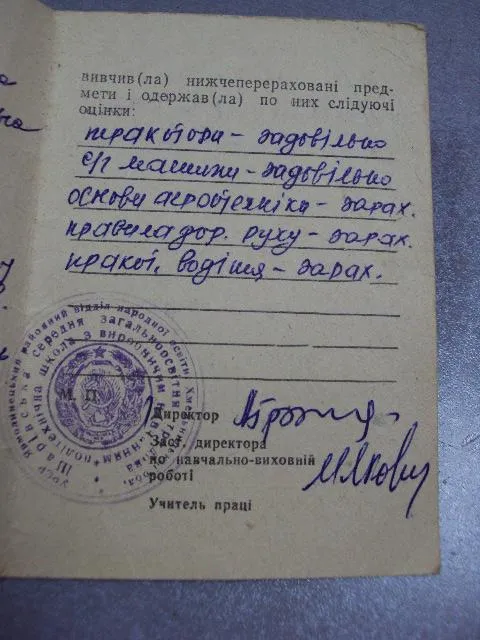 вивчив(ла) нижчеперераховані пред-
мети і одержав(ла) по них слідуючі
оцінки:
трактори – задовільно
с/г машини – задовільно
основи агротехніки – зарах.
правила дор. руху – зарах.
практ. водіння – зарах.
М. П.
Директор
Заст. директора
по навчально-виховній
роботі
Учитель праці
УРСР Ярмолинецький районний відділ народної освіти
Шарівська середня загальноосвітня
політехнічна школа з виробничим навчанням